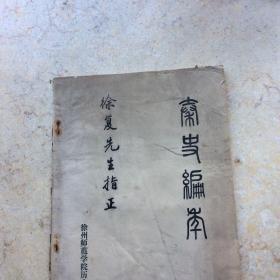 秦史编年
徐复先生指正
徐州师范学院历